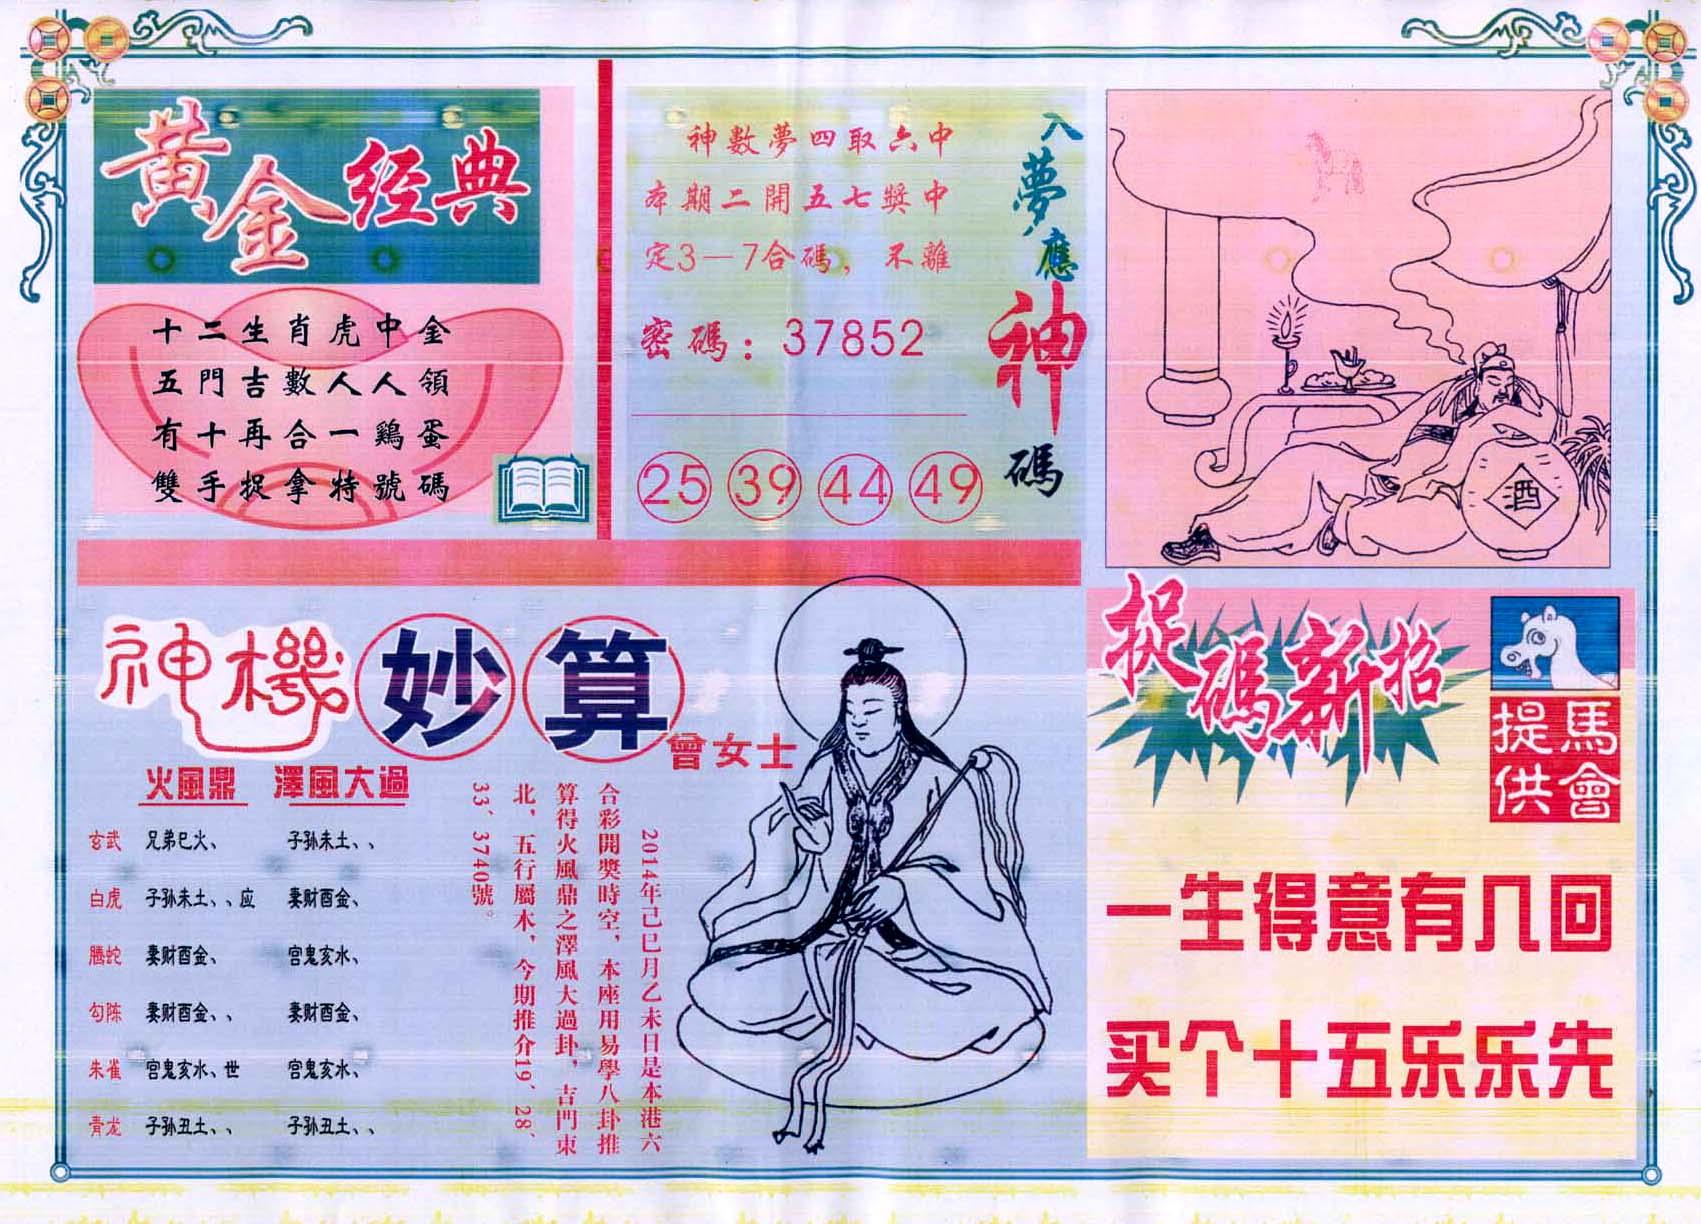 黄金经典
十二生肖虎中金
五門吉數人人領
有十再合一鷄蛋
雙手捉拿特號碼
神數夢四取六中
本期二開五七獎中
定3—7合碼，不離
密碼：37852
25 39 44 49
入夢應神碼
酒
神機妙算
曾女士
火風鼎 澤風大過
玄武 兄弟巳火、 子孙未土、、
白虎 子孙未土、、应 妻财酉金、
腾蛇 妻财酉金、 官鬼亥水、
勾陈 妻财酉金、、 妻财酉金、
朱雀 官鬼亥水、世 官鬼亥水、
青龙 子孙丑土、、 子孙丑土、、
2014年己巳月乙未日是本港六
合彩開獎時空，本座用易學八卦推
算得火風鼎之澤風大過卦，吉門東
北，五行屬木，今期推介19、28、
33、3740號。
捉碼新招
馬會
提供
一生得意有几回
买个十五乐乐先